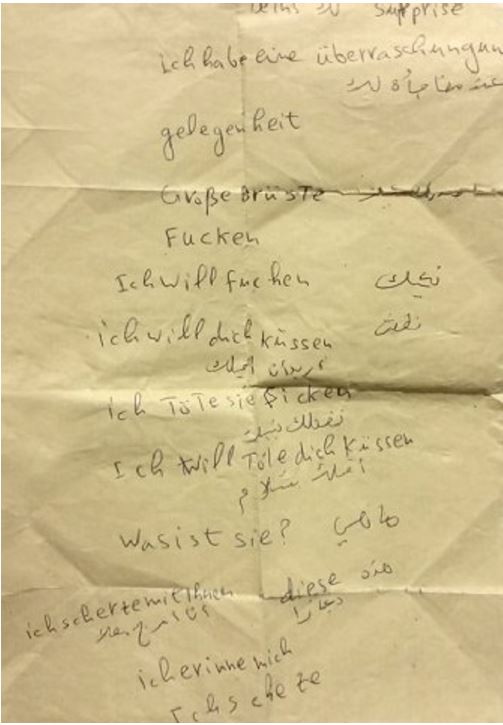 surprise
ich habe eine überraschung
عند مفاجأة لك
gelegenheit
Große Brüste
Fucken
Ich will fucken
ich will dich küssen
اريد ان اقبلك
ich Töte sie ficken
Ich will Töte dich küssen
Was ist sie? ما هي
diese هذه
ich scherze mit Ihnen
ich erinne mich
Ich scheze